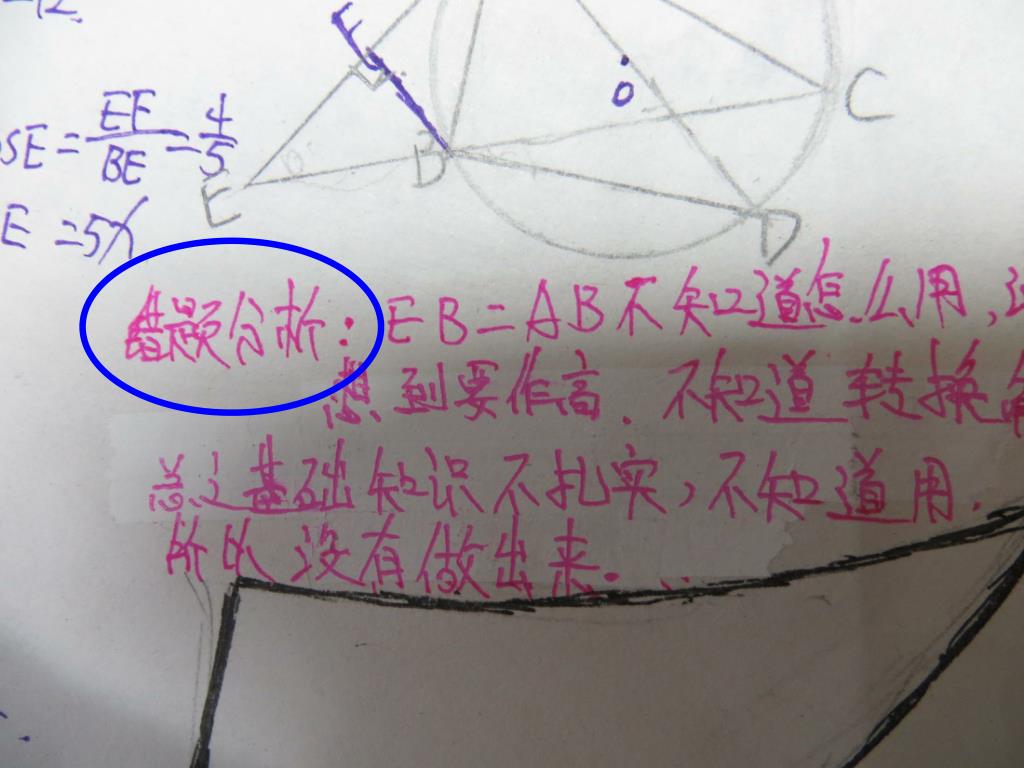 F
C
O
SE = EF/BE = 4/5
B
E
D
E = 5x
错题分析：EB=AB不知道怎么用，
想到要作高．不知道转换
总之基础知识不扎实，不知道用．
所以没有做出来．